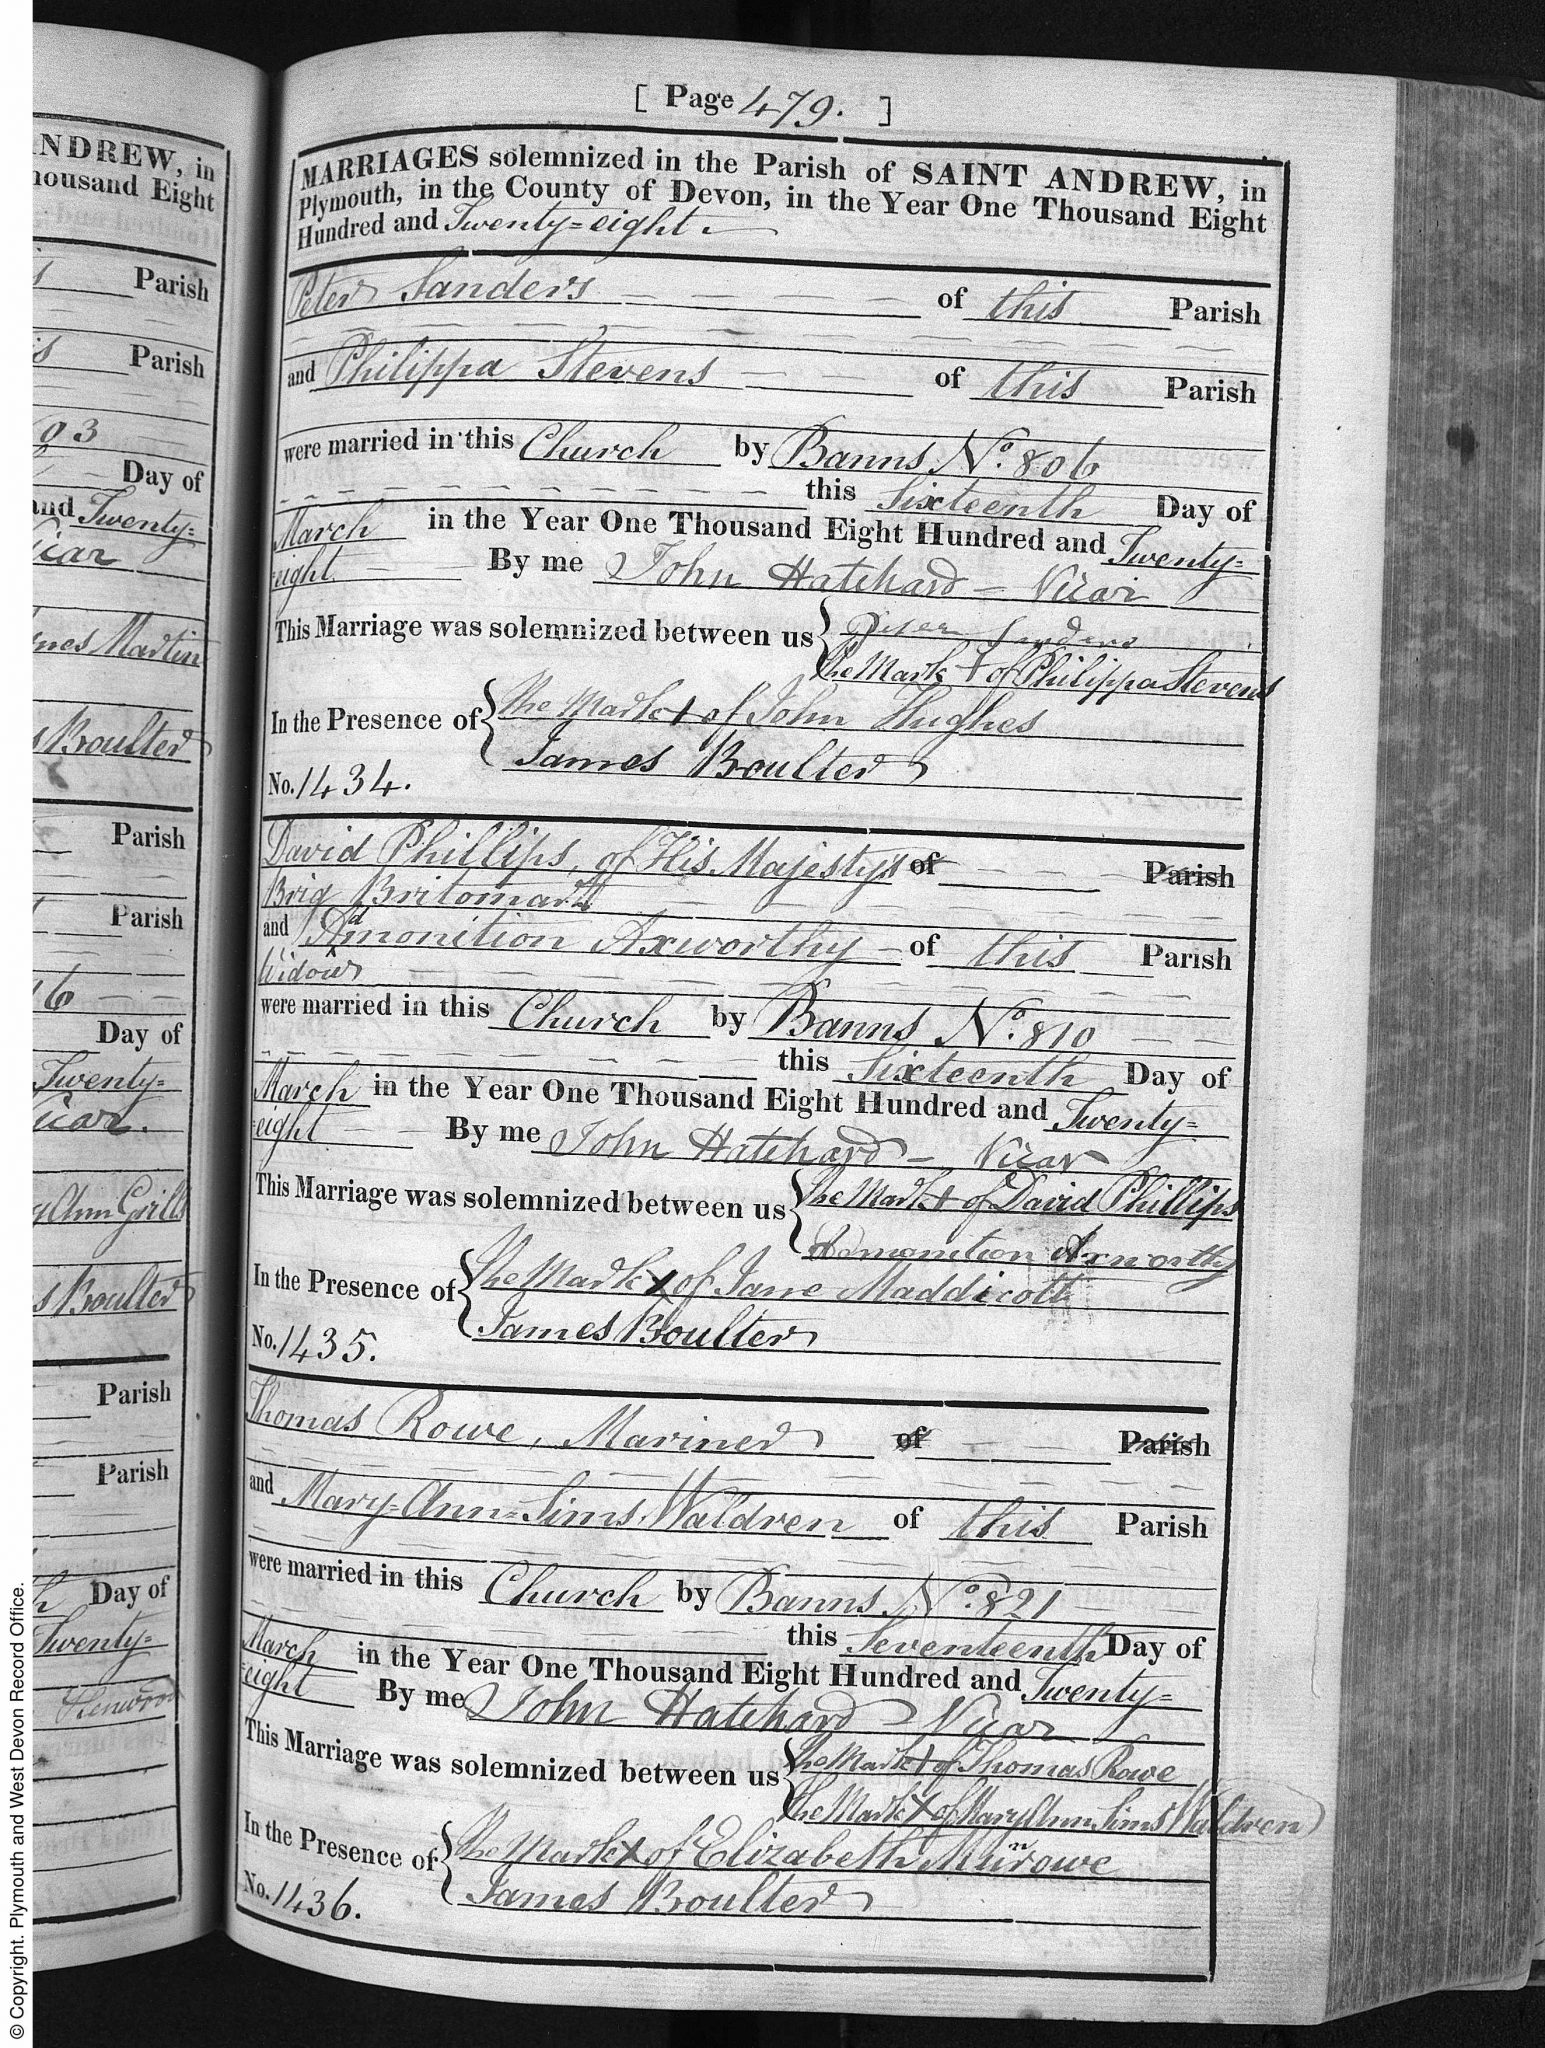 [ Page 479. ]
MARRIAGES solemnized in the Parish of SAINT ANDREW, in
Plymouth, in the County of Devon, in the Year One Thousand Eight
Hundred and Twenty=eight
Peter Sanders of this Parish
and Philippa Stevens of this Parish
were married in this Church by Banns No. 806
this Sixteenth Day of
March in the Year One Thousand Eight Hundred and Twenty=
eight By me John Hatchard - Vicar
This Marriage was solemnized between us { Peter Sanders
The Mark X of Philippa Stevens
In the Presence of { The Mark X of John Hughes
James Boulter
No. 1434.
David Phillips, of His Majestys of Parish
Brig Britomart
and Admonition Axworthy of this Parish
Widow
were married in this Church by Banns No. 810
this Sixteenth Day of
March in the Year One Thousand Eight Hundred and Twenty=
eight By me John Hatchard - Vicar
This Marriage was solemnized between us { The Mark X of David Phillips
Admonition Axworthy
In the Presence of { The Mark X of Jane Maddicott
James Boulter
No. 1435.
Thomas Rowe, Mariner of Parish
and Mary=Ann=Sims Waldren of this Parish
were married in this Church by Banns No. 821
this Seventeenth Day of
March in the Year One Thousand Eight Hundred and Twenty=
eight By me John Hatchard Vicar
This Marriage was solemnized between us { The Mark X of Thomas Rowe
The Mark X of Mary Ann Sims Waldren
In the Presence of { The Mark X of Elizabeth
James Boulter
No. 1436.
ANDREW, in
housand Eight
Parish
Parish
03
Day of
and Twenty=
Vicar
Martin
Boulter
Parish
Parish
16
Day of
Twenty=
Vicar.
Ann Grills
s Boulter
Parish
Parish
Day of
Twenty=
Henwood
© Copyright. Plymouth and West Devon Record Office.